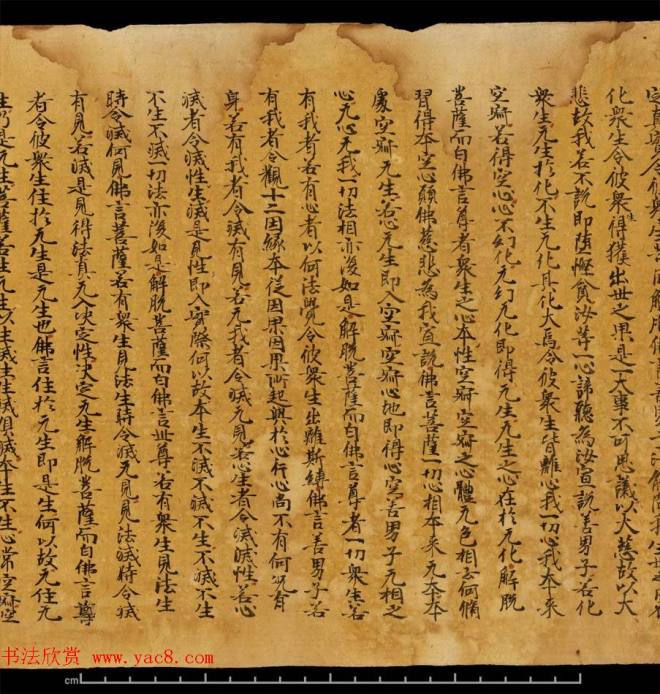 化衆生令彼衆生得獲出世之果是一大事不可思議以大慈故以大
悲故我若不說即墮慳貪汝等一心諦聽為汝宣說善男子若化
衆生无生於化不生无化其化大焉令彼衆生皆離心我一切心我本來
空寂若得空心心不幻化无幻无化即得无生无生之心在於无化解脫
菩薩而白佛言尊者衆生之心本性空寂空寂之心體无色相云何脩
習得本空心願佛慈悲為我宣說佛言菩薩一切心相本來无本本
處空寂无生若心无生即入空寂空寂心地即得心空善男子无相之
心无心无我一切法相亦復如是解脫菩薩而白佛言尊者一切衆生若
有我者若有心者以何法覺令彼衆生出離斯縛佛言善男子若
有我者令觀十二因緣本從因果因果所起興於心行心尚不有何況有
身若有我者令滅有見若无我者令滅无見若心生者令滅滅性若心
滅者令滅性生滅是見性即入實際何以故本生不滅不滅不生不滅不生
不生不滅一切法亦復如是解脫菩薩而白佛言世尊若有衆生見法生
時令滅何見佛言菩薩若有衆生見法生時令滅无見見法滅時令滅
有見若滅是見得法真无入決定性決定无生解脫菩薩而白佛言尊
者令彼衆生住於无生是无生也佛言住於无生即是生何以故无住无
生乃是无生菩薩若生无生以生滅生生滅俱滅本生不生心常空寂空
书法欣赏 www.yac8.com
cm